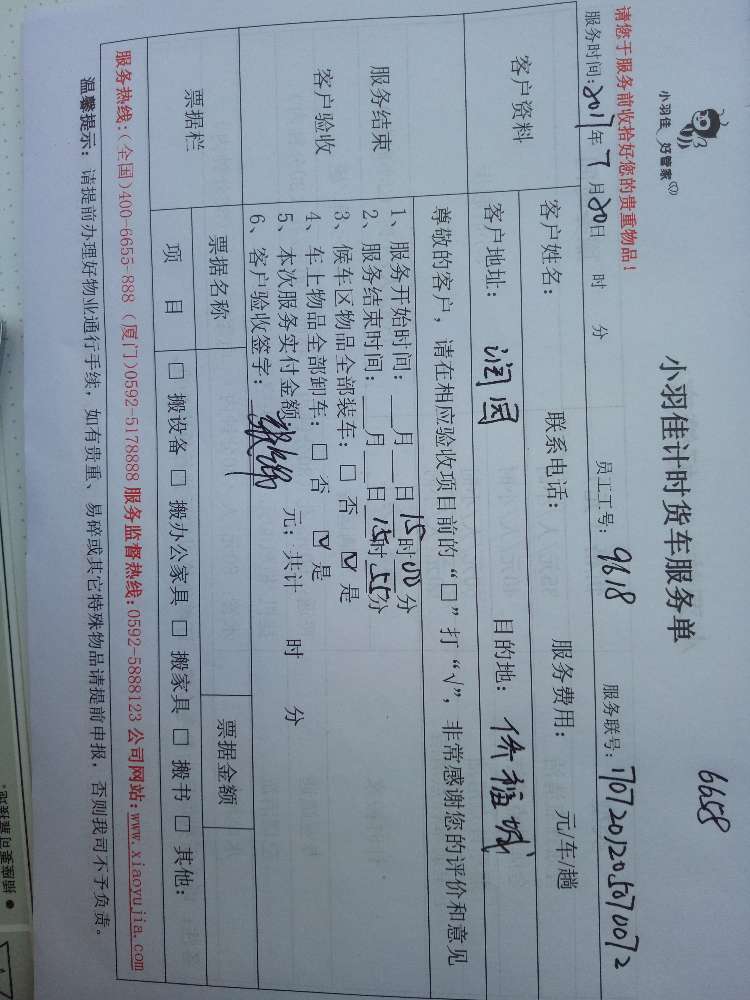 6658
小羽佳 好管家
小羽佳计时货车服务单
请您于服务前收拾好您的贵重物品！
服务时间:2017年7月20日 时 分 员工工号: 9618 服务联号: 1707201205070072
客户资料
客户姓名: 联系电话: 服务费用: 元/车/趟
客户地址: 润园 目的地: 侨福城
服务结束
客户验收
尊敬的客户，请在相应验收项目前的“□”打“√”，非常感谢您的评价和意见
1、服务开始时间:__月__日15时00分
2、服务结束时间:__月__日15时55分
3、候车区物品全部装车: □ 否 ☑ 是
4、车上物品全部卸车: □ 否 ☑ 是
5、本次服务实付金额 元; 共计 时 分
6、客户验收签字:
票据栏
票据名称 票据金额
项 目 □ 搬设备 □ 搬办公家具 □ 搬家具 □ 搬书 □ 其他:
服务热线:(全国)400-6655-888 (厦门)0592-5178888 服务监督热线:0592-5888123 公司网站:www.xiaoyujia.com
温馨提示: 请提前办理好物业通行手续，如有贵重、易碎或其它特殊物品请提前申报，否则我司不予负责。